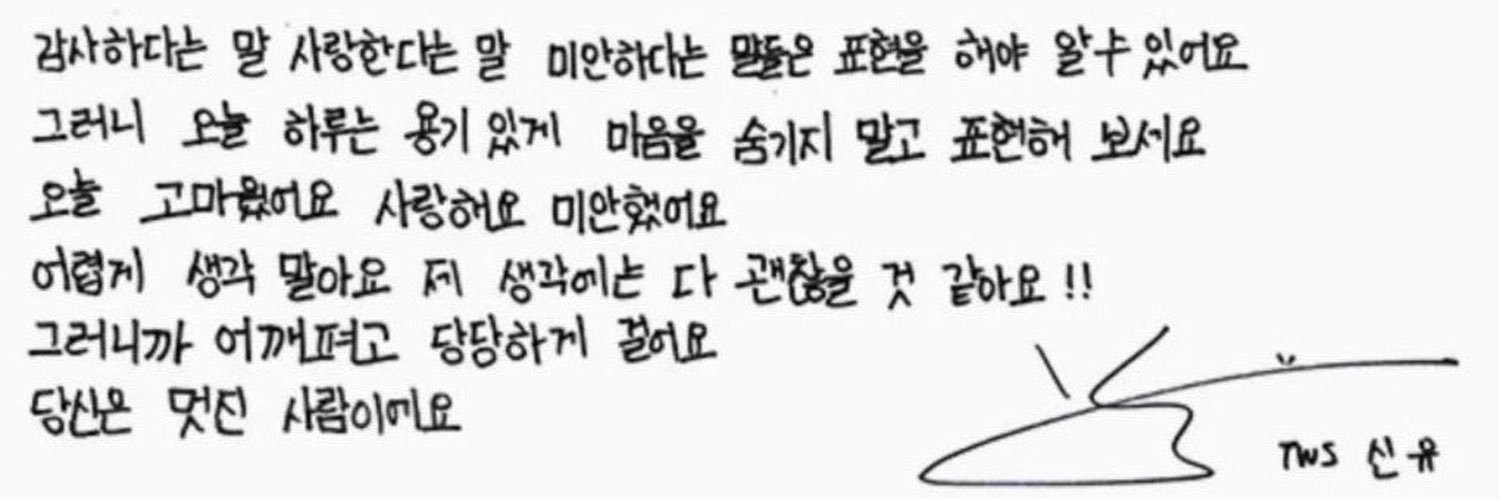 감사하다는 말 사랑한다는 말 미안하다는 말들은 표현을 해야 알 수 있어요
그러니 오늘 하루는 용기 있게 마음을 숨기지 말고 표현해 보세요
오늘 고마웠어요 사랑해요 미안했어요
어렵게 생각 말아요 제 생각에는 다 괜찮을 것 같아요!!
그러니까 어깨펴고 당당하게 걸어요
당신은 멋진 사람이에요
TWS 신유